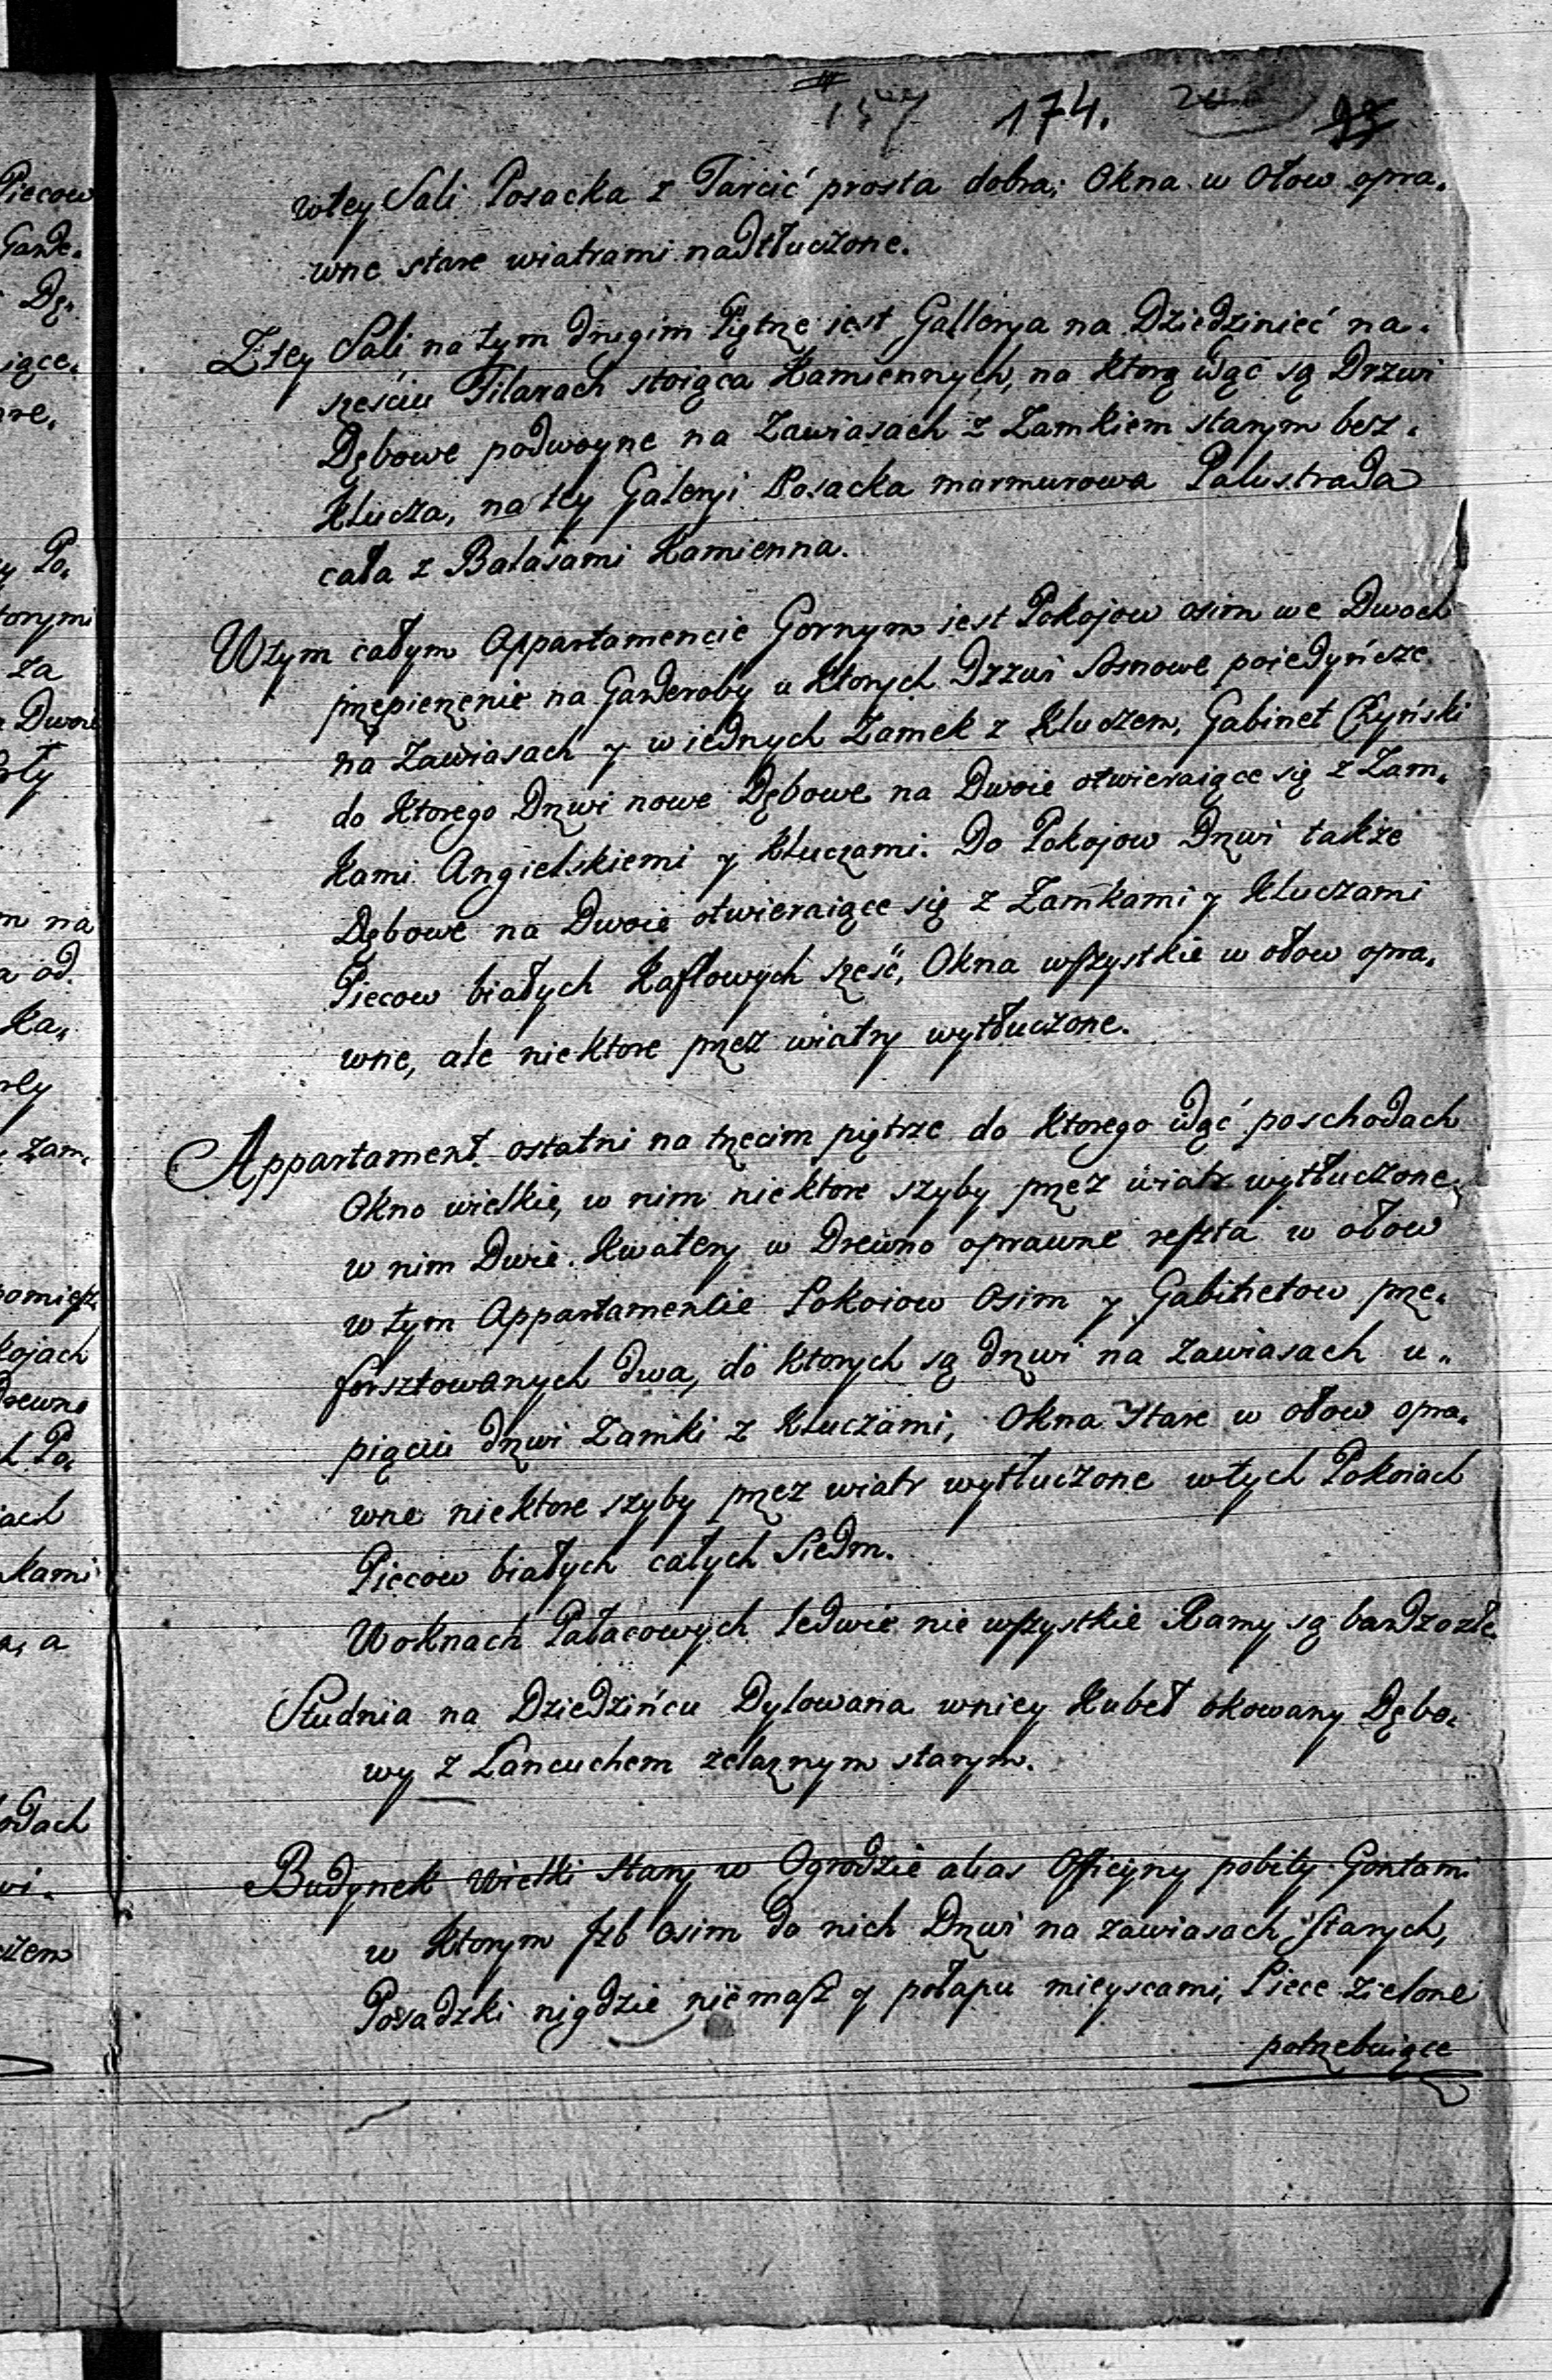 157 174. 93
wtey Sali Posacka z Tarcić prosta dobra; Okna w Ołow opra,
wne stare wiatrami nadtłuczone.
Ztey Sali na tym drugim Piętrze iest Gallerya na Dziedziniec na,
sześciu Filarach stoiąca Kamiennych, na ktorą idąc są Drzwi
Dębowe podwoyne na Zawiasach z Zamkiem starym bez,
Klucza, na tey Galeryi Posacka marmurowa Palustrada
cała z Balasami Kamienna.
Wtym całym Appartamencie Gornym iest Pokojow osim we Dwoch
przepierzenie na Garderoby u Ktorych Drzwi Sosnowe poiedyńcze
na Zawiasach y w iednych Zamek z Kluczem, Gabinet Chyński
do Ktorego Drzwi nowe Dębowe na Dwoie otwieraiące się z Zam,
Kami Angielskiemi y Kluczami. Do Pokojow Drzwi także
Dębowe na Dwoie otwieraiące się z Zamkami y Kluczami
Piecow białych Kaflowych sześć, Okna wszystkie w ołow opra,
wne, ale niektore przez wiatry wytłuczone.
Appartament ostatni na trzecim piętrze do Ktorego idąć poschodach
Okno wielkie, w nim niektore szyby przez wiatr wytłuczone,
w nim Dwie Kwatery w Drewno oprawne reszta w ołow
w tym Appartamencie Pokoiow Osim y Gabinetow prze,
forsztowanych dwa, do ktorych są drzwi na zawiasach u,
pięciu drzwi Zamki z Kluczami, Okna Stare w ołow opra,
wne niektore szyby przez wiatr wytłuczone wtych Pokoiach
Piecow białych całych Siedm.
Woknach Pałacowych ledwie nie wszystkie Ramy są bardzo złe.
Studnia na Dziedzińcu Dylowana wniey Kubeł okowany Dębo,
wy z Lancuchem żelaznym starym.
Budynek Wielki Stary w Ogrodzie alias Officyny pobity Gontami
w Ktorym Jzb Osim do nich Drzwi na zawiasach Starych,
Posadzki nigdzie niemasz y połapu mieyscami, Piece zielone
potrzebuiące